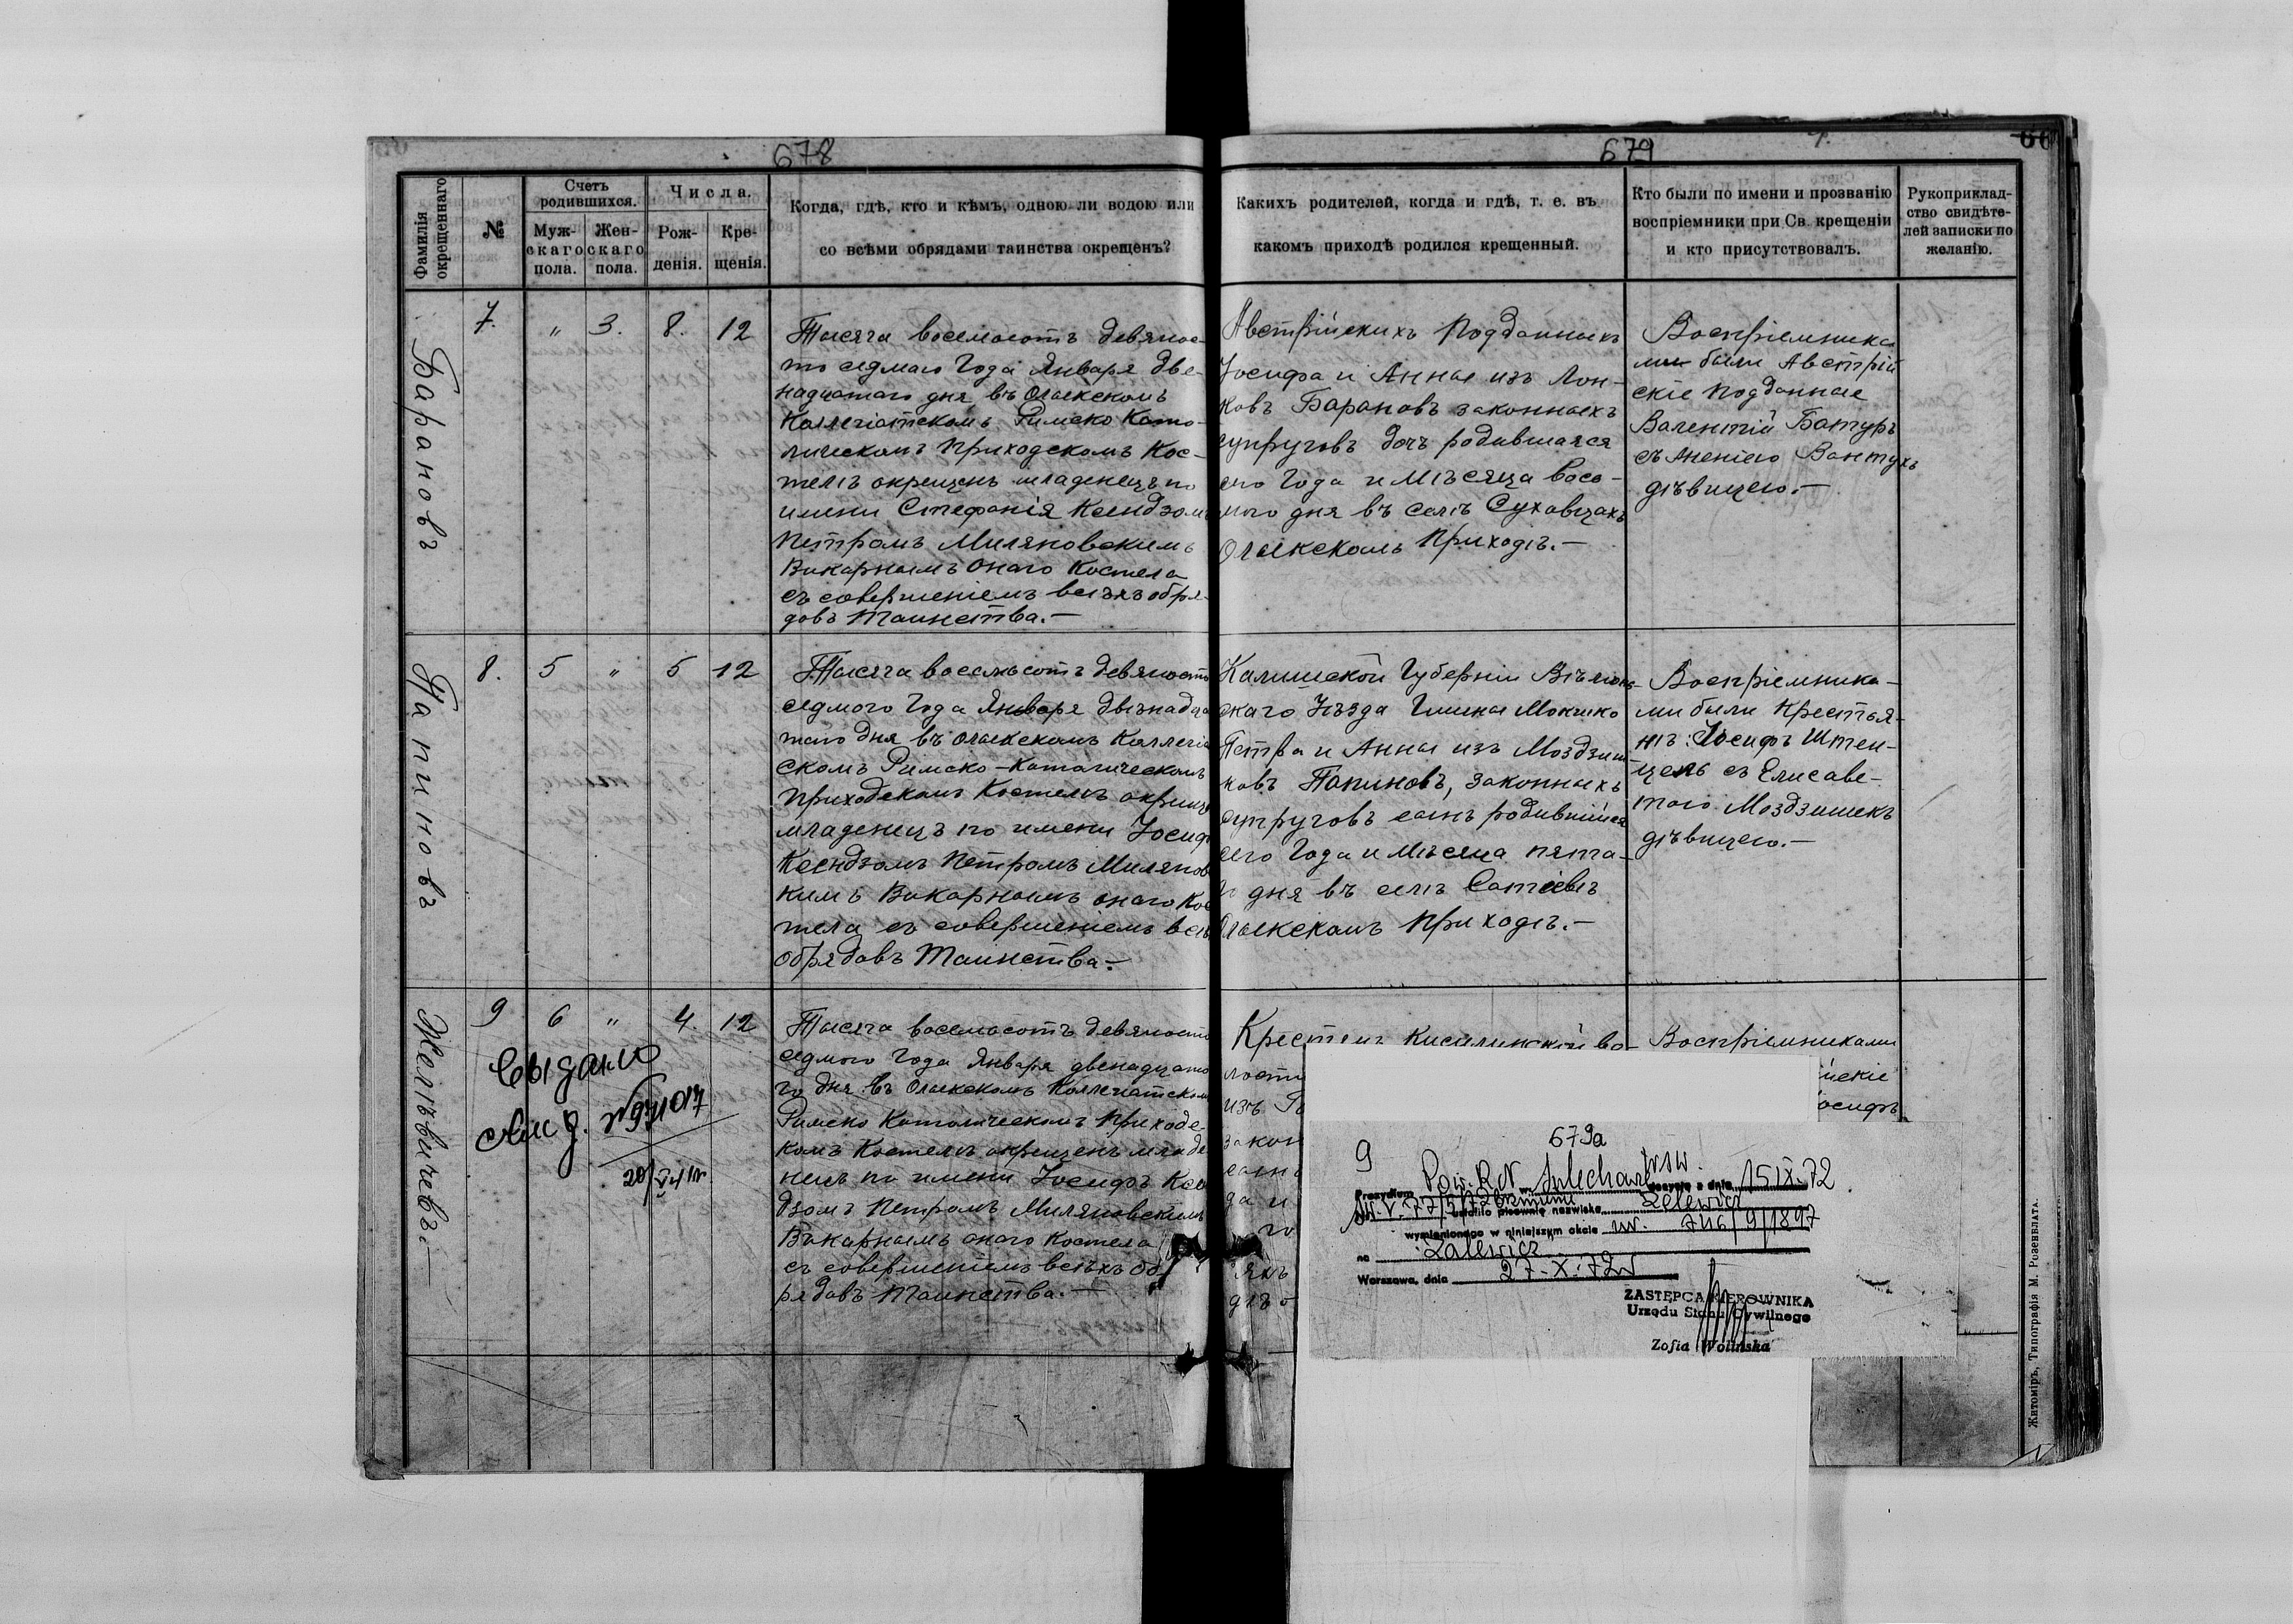 678
Фамилія окрещеннаго
№
Счетъ родившихся.
Муж-
скаго
пола.
Жен-
скаго
пола.
Числа.
Рож-
денія.
Кре-
щенія.
Когда, гдѣ, кто и кѣмъ, одною ли водою или
со всѣми обрядами таинства окрещенъ?
Барановъ
7.
„
3.
8.
12
Тысяча восемьсотъ девянос-
то седмаго Года Января две-
надцатаго дня въ Олыкскомъ
Коллегіатскомъ Римско Като-
лическомъ Приходскомъ Кос-
телѣ окрещенъ младенецъ по
имени Стефанія Ксендзомъ
Петромъ Миляновскимъ
Викарнымъ Онаго Костела
съ совершеніемъ всѣхъ обря-
довъ Таинства.—
Папиновъ
8.
5
„
5
12
Тысяча восемьсотъ девяносто
седмого Года Января двѣнадца
таго дня въ Олыкскомъ Коллегіа
скомъ Римско-Католическомъ
Приходскомъ Костелѣ окрище
младенецъ по имени Іосифъ
Ксендзомъ Петромъ Милянов
кимъ Викарнымъ онаго Кос
тела съ совершеніемъ всѣ
обрядовъ Таинства.—
Желѣвичевъ.—
9
6
„
4.
12
Выдано
№971017
20/V 41
Тысяча восемьсотъ девяносто
седмого Года Января двенадцата
го дня въ Олыкскомъ Коллегіатском
Римско Католическомъ Приходс-
комъ Костелѣ окрещенъ младе
нецъ по имени Іосифъ Ксен
дзомъ Петромъ Миляновскимъ
Викарнымъ онаго Костела
съ совершеніемъ всѣхъ об
рядовъ Таинства.—
679
Какихъ родителей, когда и гдѣ, т. е. въ
какомъ приходѣ родился крещенный.
Кто были по имени и прозванію
воспріемники при Св. крещеніи
и кто присутствовалъ.
Рукоприклад-
ство свидѣте-
лей записки по
желанію.
Австрійскихъ Подданныхъ
Іосифа и Анны изъ Лон-
ковъ Барановъ законныхъ
супруговъ дочь родившаяся
сего Года и Мѣсяца восе-
мого дня въ селѣ Суховцахъ
Олыкскомъ Приходѣ.—
Воспріемника
ми были Австрій
скіе подданные
Валентій Батуръ
съ Анеліею Вантухъ
дѣвицею.—
Калишской Губерніи Вѣлюнь-
скаго Уѣзда Гмины Мокрско
Петра и Анны изъ Моздзин
ковъ Папиновъ, законныхъ
супруговъ сынъ родившійся
сего Года и Мѣсяца пята-
дня въ селѣ Сатіевѣ
Олыкскомъ Приходѣ.—
Воспріемника-
ми были Крестья-
нѣ: Іосифъ Штен-
цель съ Елисаве-
тою Моздзишекъ
дѣвицею.—
Крестьянъ Киселинской во-
лости
изъ
закон
сынъ
да и
го
дѣ
Воспріемниками
йскіе
осифъ
679a
9
Prezydium Pow. R.N. w Sulechowie decyzją z dnia 15 IX. 72
ustaliło pisownię nazwiska Zelewicz
wymienionego w niniejszym akcie nr. 746/9/1897
na Zalewicz
Warszawa, dnia 27-X-72
ZASTĘPCA KIEROWNIKA
Urzędu Stanu Cywilnego
Zofia Wolińska
Житомiръ, Типографiя М. Розенблата.